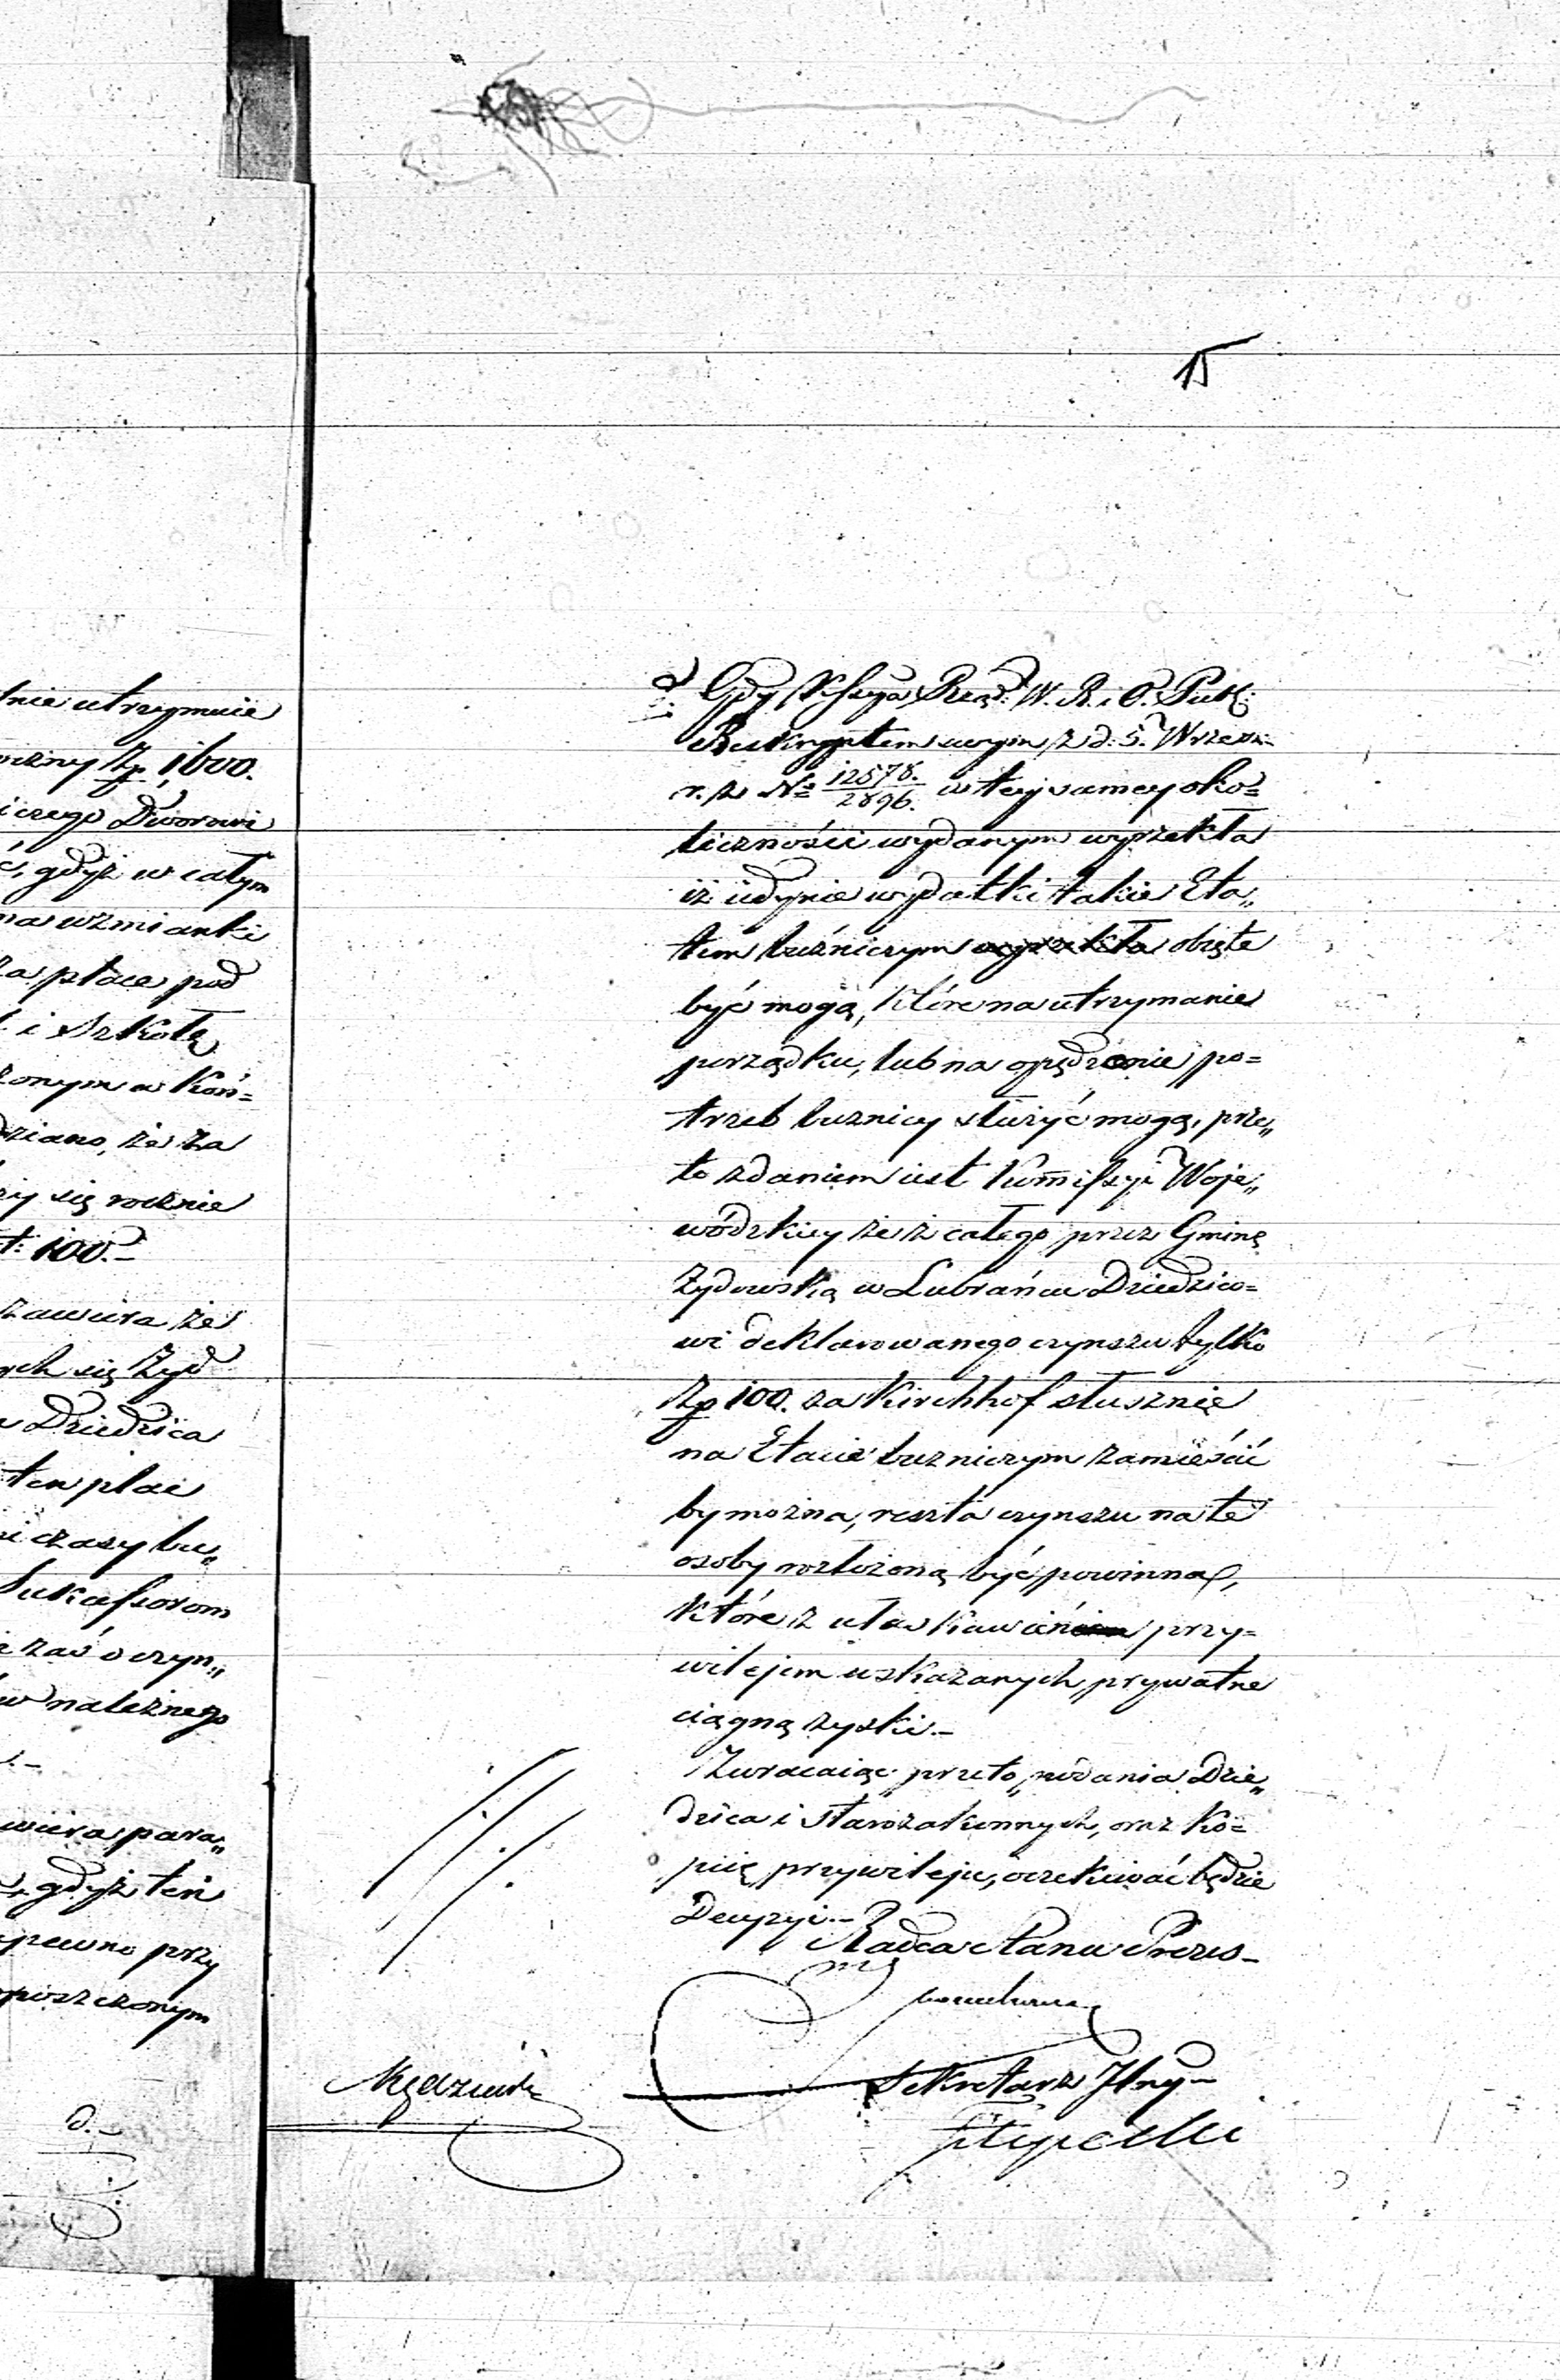 15
lnie utrzymuie
Zp 1600.
iczego Dworowi
ć, gdyż w całym
na wzmianki
za place pod
i Szkołą
żonym a Koń=
dziano, że za
się rocznie
t: 100.–
zawiera że
ych się Żyd
Dziedzica
ten plac
czasy bu„
zaś o czyn„
w należnego
wiera para„
gdyż ten
pewno przy
poszczonym
d.–
Gdy Kssya Rząd: W. R. i O. Publ:
Reskryptem swym z d. 5. Wrześn:
r. z N: 12578./2896. w tej samey oko=
liczności wydanym wyrzekła
iż iedynie wydatki takie Eta„
tem buźniczym wyrzekła obięte
być mogą, które na utrzymanie
porządku, lub na opędzenie po=
trzeb buznicy służyć mogą, prze„
to zdaniem iest Kommissyi Woje„
wódzkiey że z całego przez Gminę
Żydowską w Lubrańcu Dziedzico=
wi deklarowanego czynszu tylko
Zp 100. za Kirchhof słusznie
na Etacie buzniczym zamieścić
by można, reszta czynszu na te
osoby rozłożoną być powinna,
które z przy=
wilejem wskazanych, prywatne
ciągną zyski.–
Zwracaiąc przeto podania Dzie„
dzica i starozakonnych, oraz ko=
piię przywileju, oczekiwać będzie
Decyzyi.–
Radca Stanu Prezes–
Sekretarz Jlny–